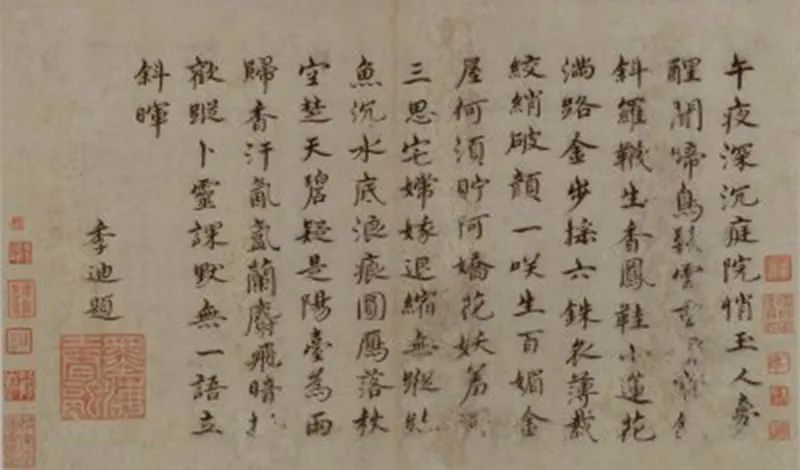 午夜深沉庭院悄玉人夢
醒聞啼鳥鬆雲
斜羅襪生香鳳鞋小蓮花
滿路金步搖六銖衣薄裁
絞綃破顏一咲生百媚金
屋何須貯阿嬌花妖
三思宅嫦娥退縮無蹤
魚沉水底浪痕圓鴈落秋
空楚天碧疑是陽臺為雨
歸香汗氤氳蘭麝飛暗
敲蹤卜靈課默無一語立
斜暉
李迪題